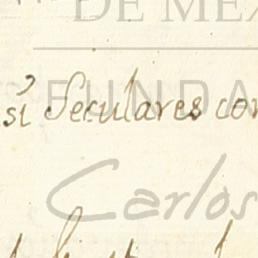 DE MEX
FUNDA
sí Seculares con
Carlos